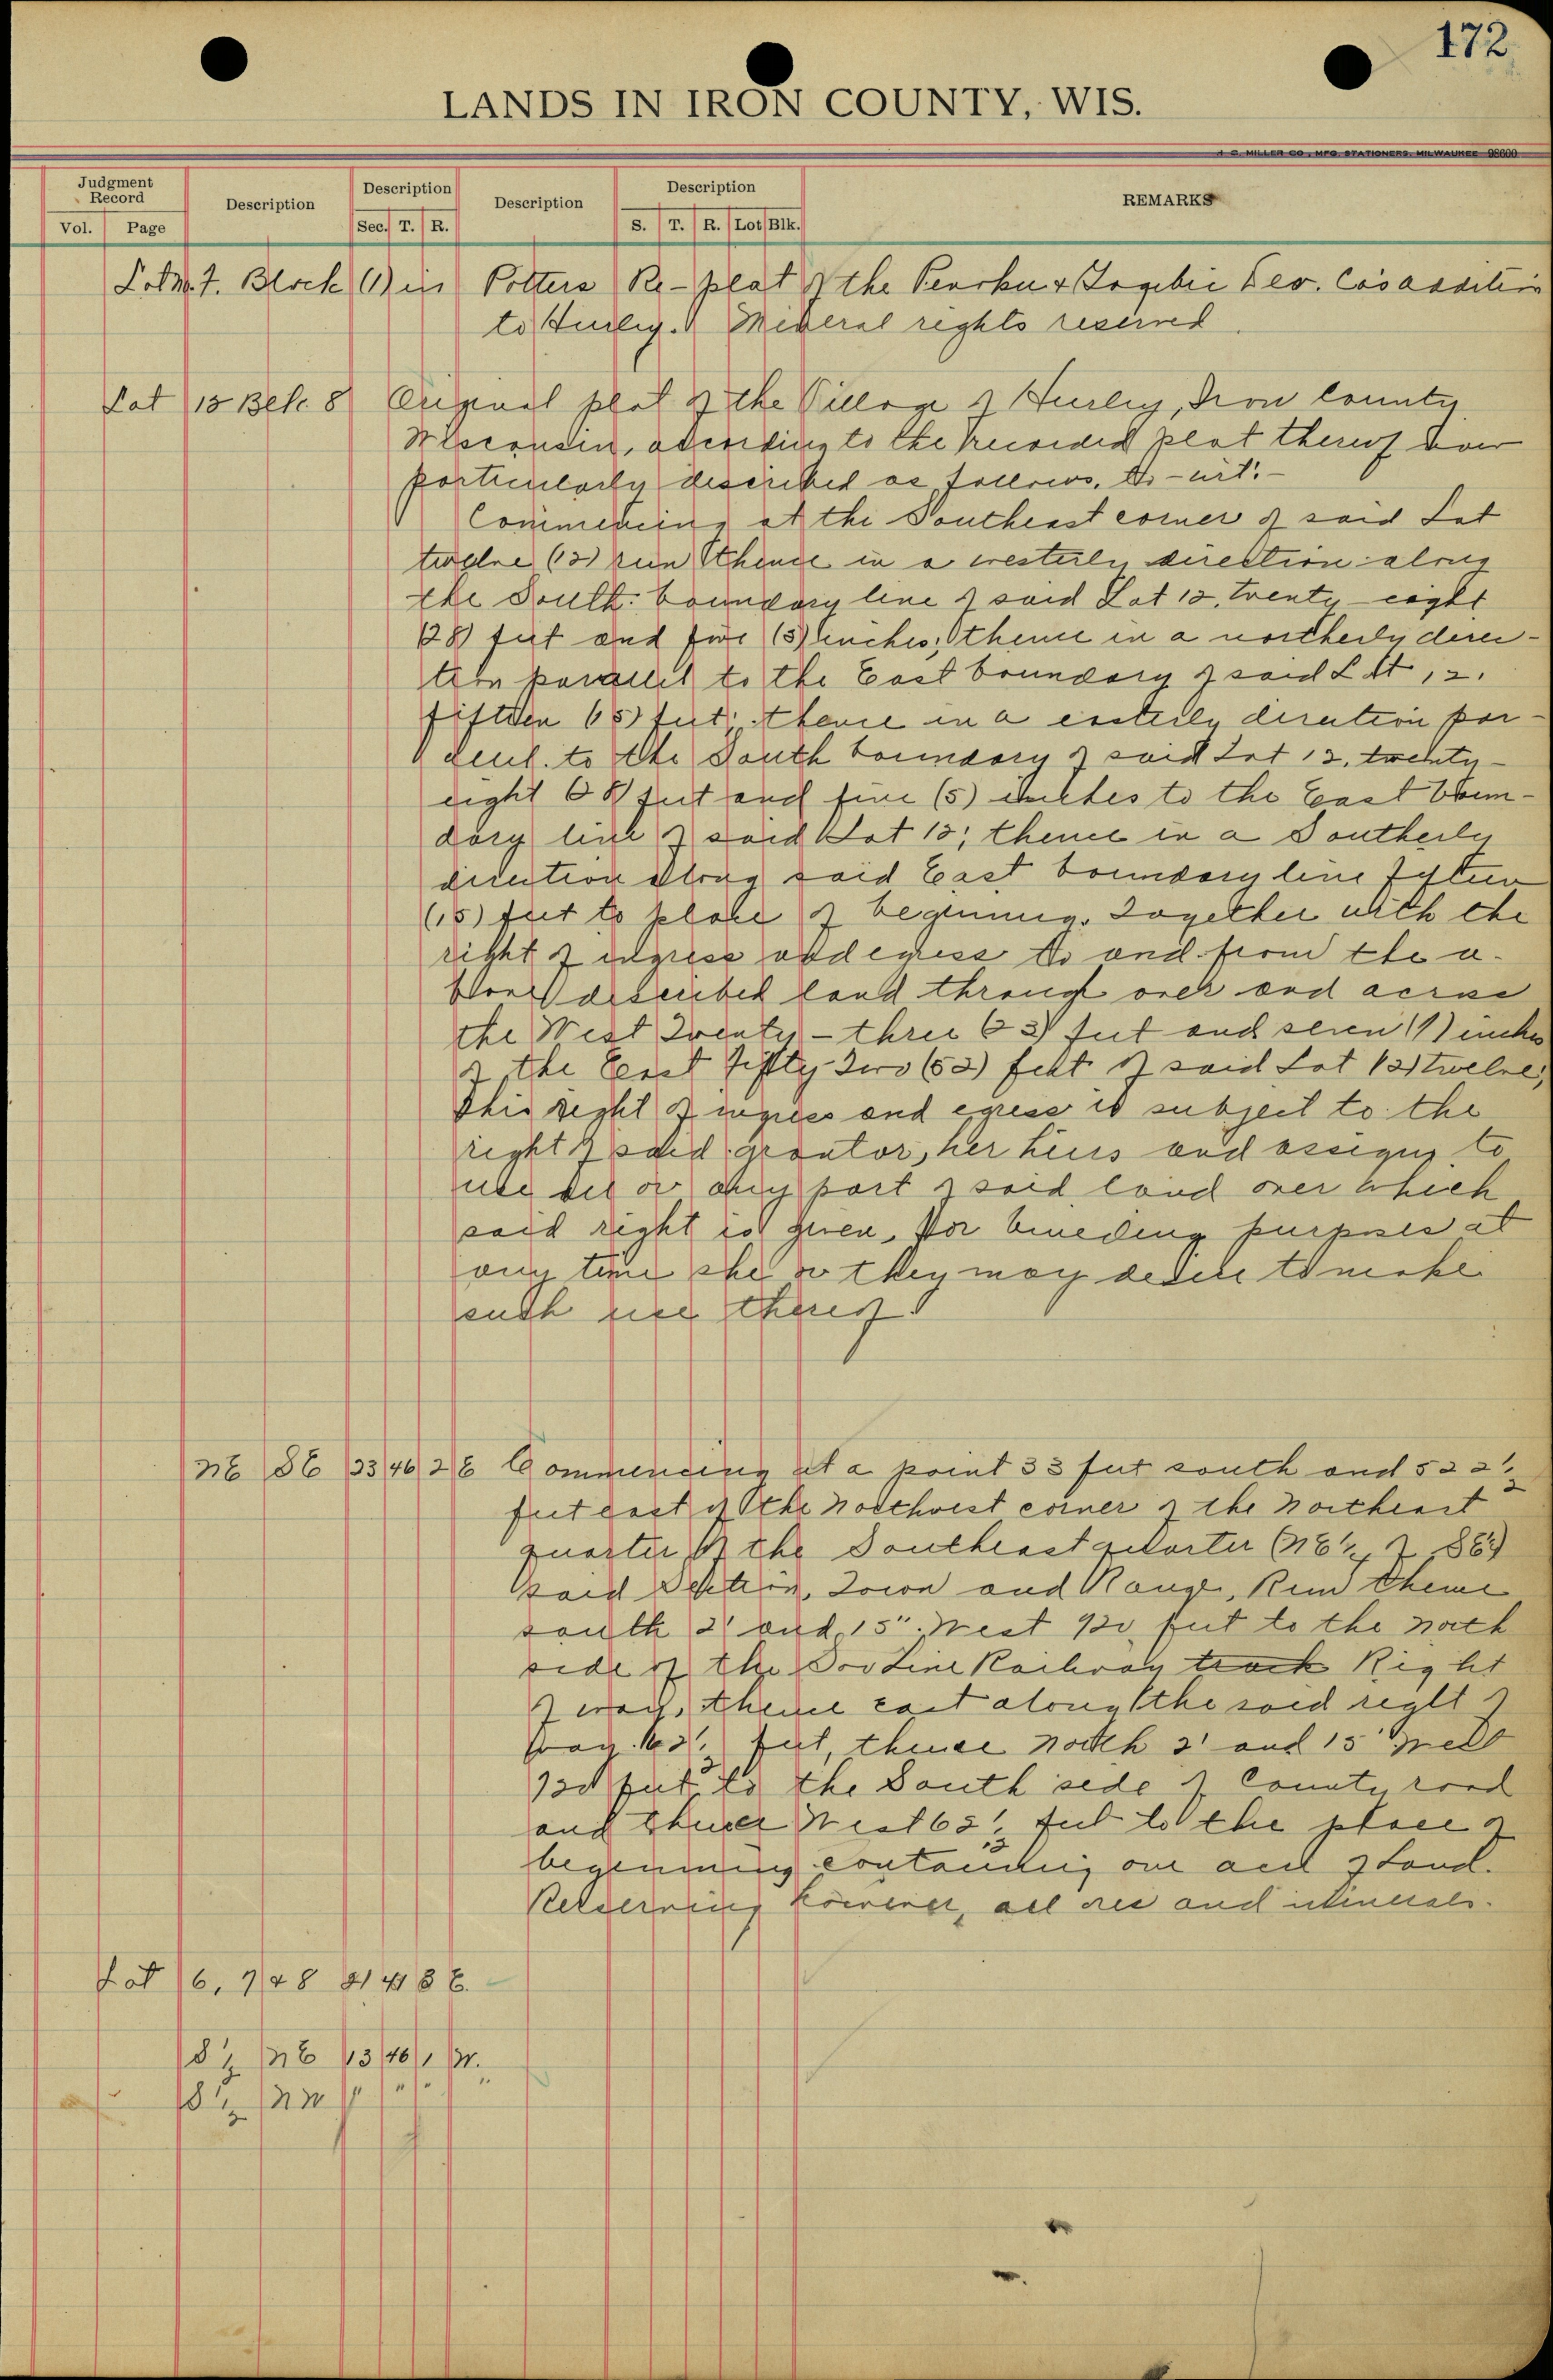 172
LANDS IN IRON COUNTY, WIS.
H. C. MILLER CO., MFG. STATIONERS, MILWAUKEE 98600
Judgment Record
Vol. Page
Description
Description
Sec. T. R.
Description
Description
S. T. R. Lot Blk.
REMARKS
Lot No. 7. Block (1) in Potters Re-plat of the & Gogebic Dev. Co's addition
to Hurley. Mineral rights reserved.
Lot 12 Belk. 8 Original plat of the Village of Hurley, Iron County
Wisconsin, according to the recorded plat thereof
particularly described as follows, to-wit:-
Commencing at the Southeast corner of said Lot
twelve (12) run thence in a westerly direction along
the South boundary line of said Lot 12, twenty-eight
(28) feet and five (5) inches; thence in a northerly direc-
tion parallel to the East boundary of said Lot 12.
fifteen (15) feet; thence in a easterly direction par-
to the South boundary of said Lot 12, twenty-
eight (28) feet and five (5) inches to the East boun-
dary line of said Lot 12; thence in a Southerly
direction along said East boundary line fifteen
(15) feet to place of beginning. Together with the
right of ingress and egress to and from the a-
bove described land through over and across
the West Twenty-three (23) feet and seven (7) inches
of the East fifty-Two (52) feet of said Lot (12) twelve,
This right of ingress and egress is subject to the
right of said grantor, her heirs and assigns to
use all or any part of said land over which
said right is given, for building purposes at
any time she or they may desire to make
such use thereof.
NE SE 23 46 2 E Commencing at a point 33 feet south and 522 1/2
feet east of the Northwest corner of the Northeast
quarter of the Southeast quarter (NE 1/4 of SE 1/4)
said Section, Town and Range, Run thence
south 2' and 15" West 720 feet to the north
side of the Soo Line Railway track Right
of way, thence east along the said right of
way 62 1/2 feet, thence North 2' and 15" West
720 feet to the South side of County road
and thence West 62 1/2 feet to the place of
beginning containing one acre of Land.
Reserving however, all ores and minerals.
Lot 6, 7 & 8 21 41 3 E.
S 1/2 NE 13 46 1 W.
S 1/2 NW " " " "